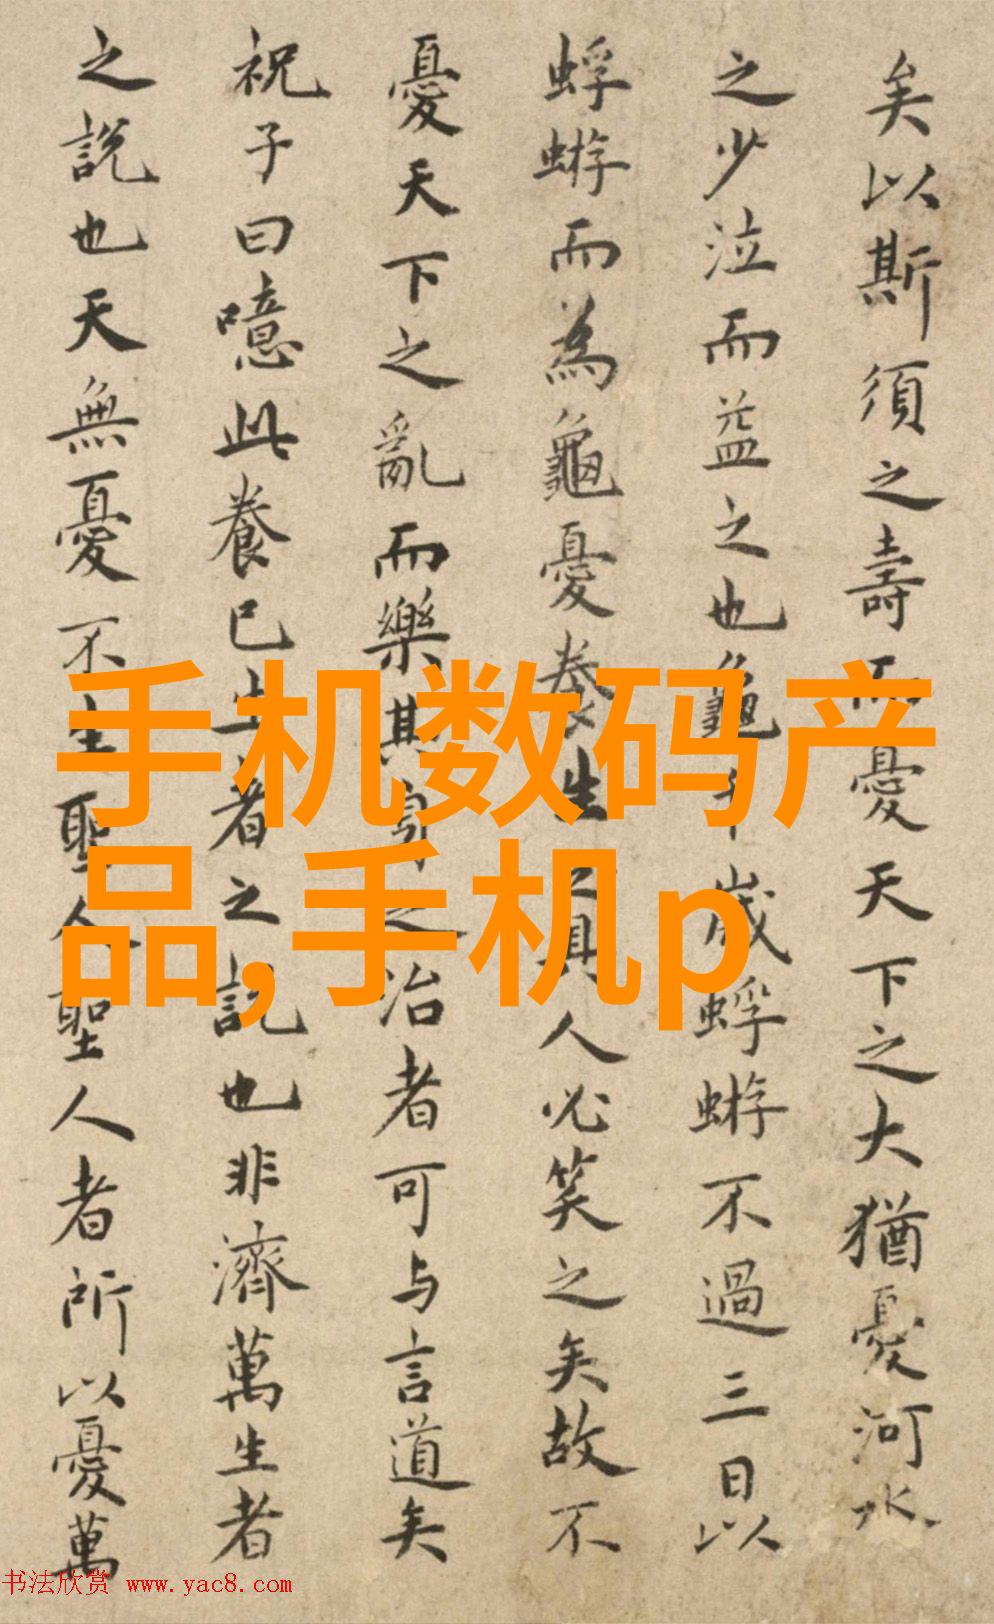 矣以斯須之壽而憂天下之大猶憂河水
之少泣而益之也龜千歲蜉蝣不過三日以
蜉蝣而為龜憂養生之具人必笑之矣故不
憂天下之亂而樂其身之治者可与言道矣
祝子曰噫此養己生者之說也非濟萬生者
之說也天無憂不生聖人聖人者所以憂萬
手机数码产
品,手机p
书法欣赏 www.yac8.com